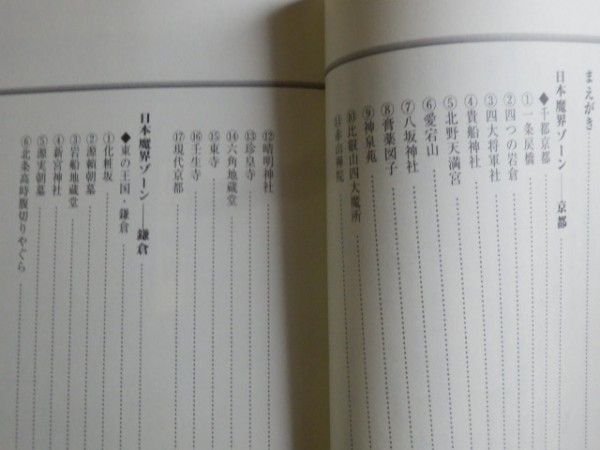 まえがき
日本魔界ゾーン――京都
◆千都京都
①一条戻橋
②四つの岩倉
③四大将軍社
④貴船神社
⑤北野天満宮
⑥愛宕山
⑦八坂神社
⑧膏薬図子
⑨神泉苑
⑩比叡山四大魔所
⑪赤山禅院
⑫晴明神社
⑬珍皇寺
⑭六角地蔵堂
⑮東寺
⑯壬生寺
⑰現代京都
日本魔界ゾーン――鎌倉
◆東の王国・鎌倉
①化粧坂
②源頼朝墓
③岩船地蔵堂
④新宮神社
⑤源実朝墓
⑥北条高時腹切りやぐら